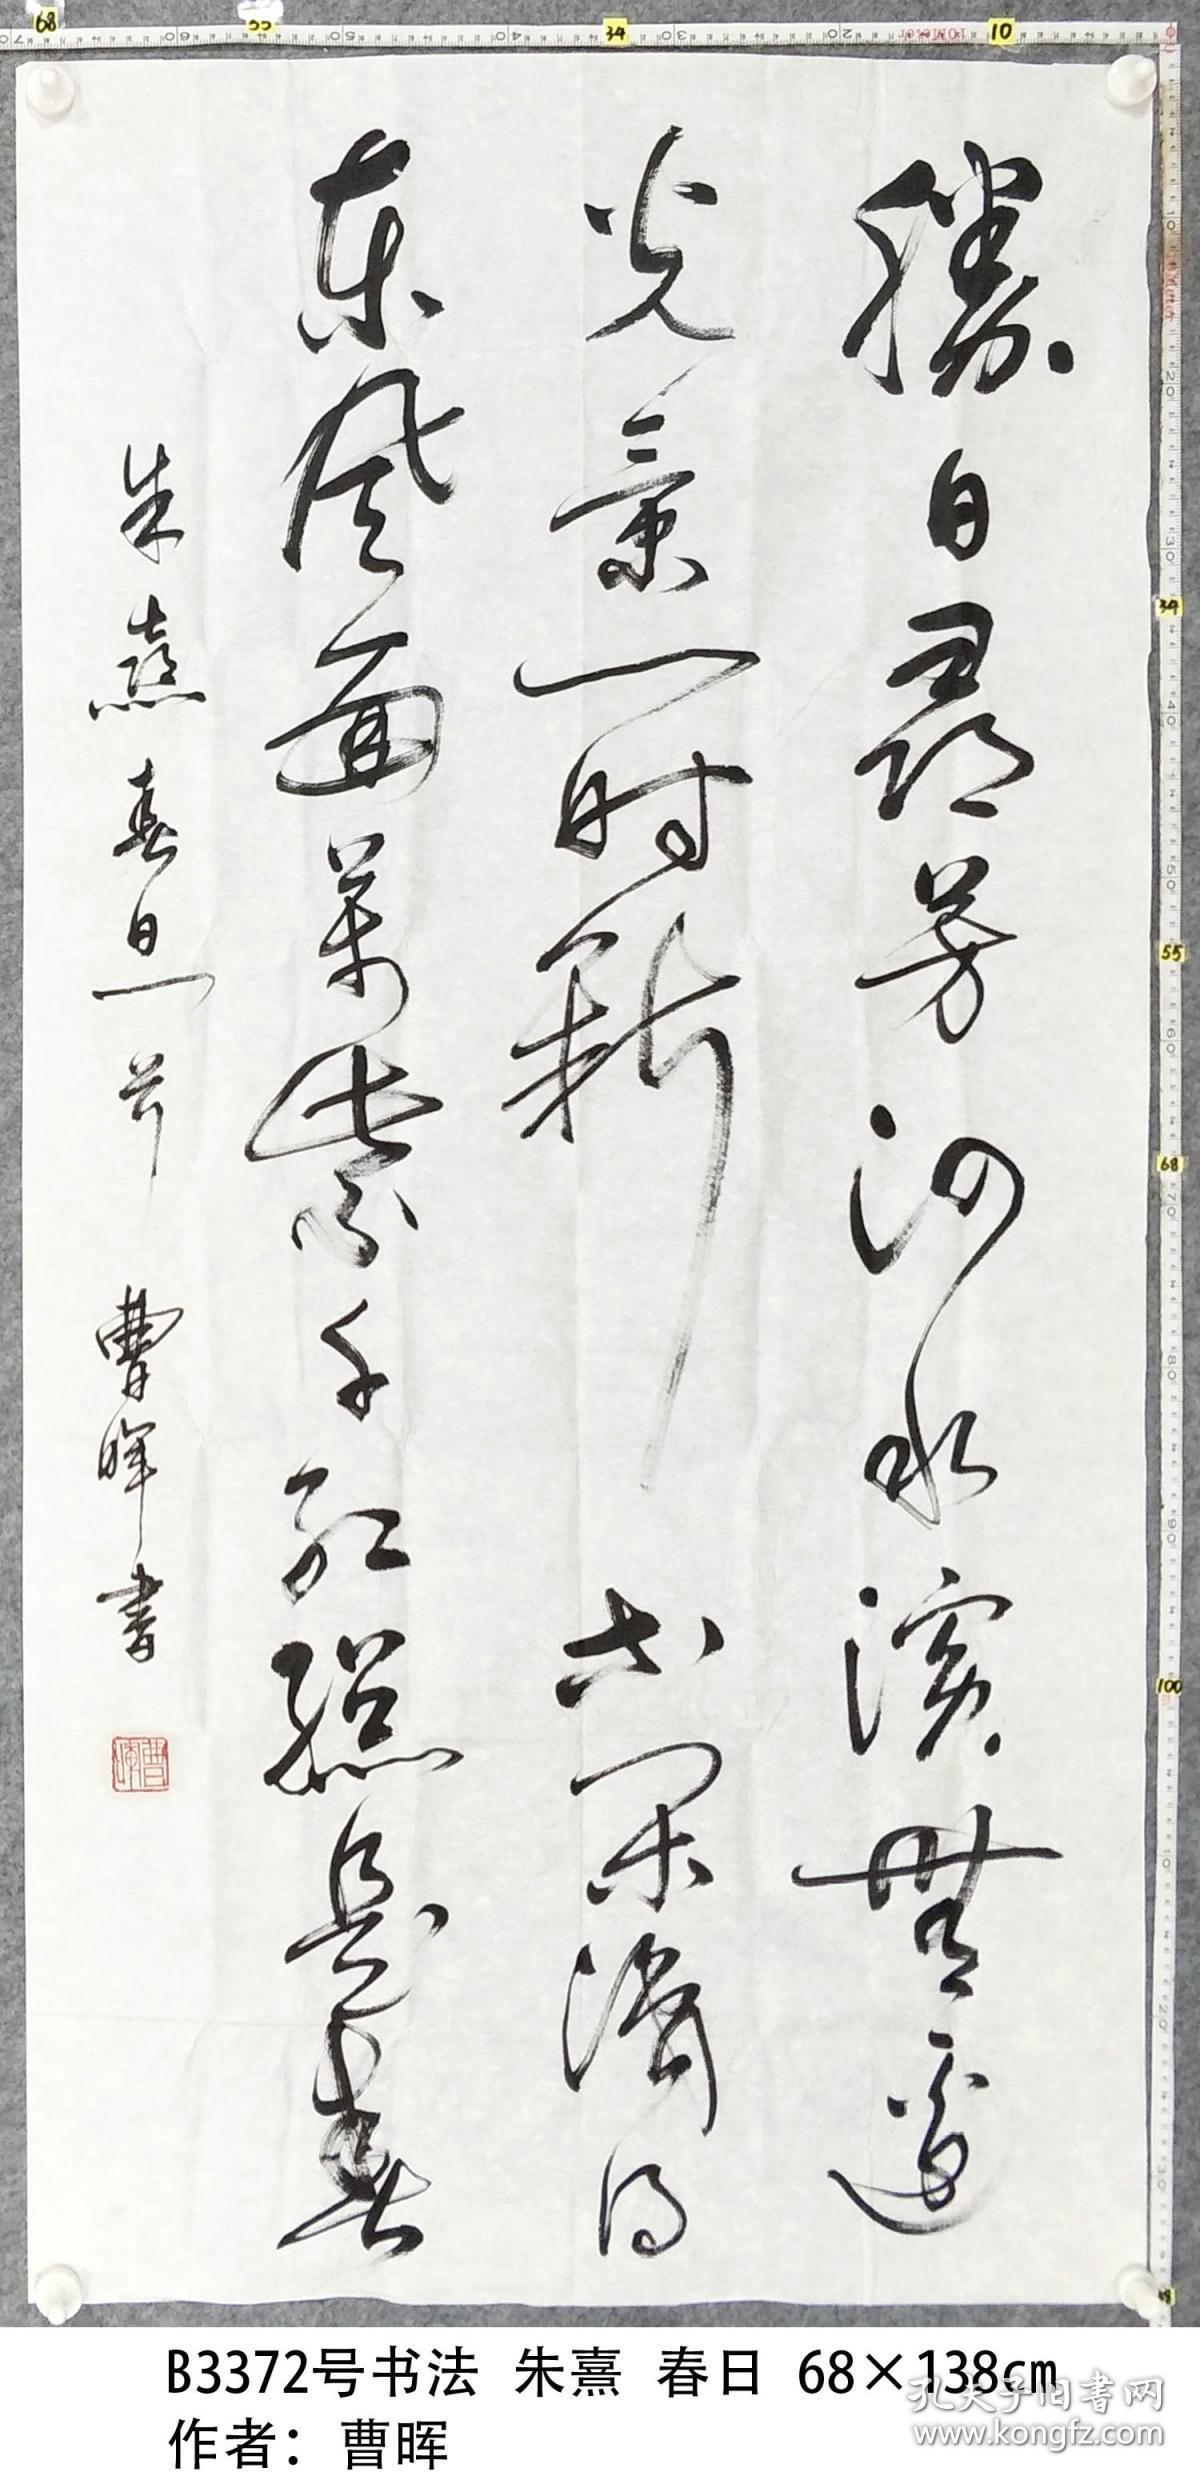 勝日尋芳泗水濱無邊
光景一时新 等閑識得
東風面萬紫千紅總是春
朱熹春日一首 曹暉書
B3372号书法 朱熹 春日 68×138cm
作者：曹晖
孔夫子旧书网
www.kongfz.com